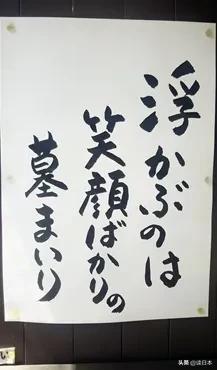 浮かぶのは
笑顔ばかりの
墓まいり
头条 @读日本